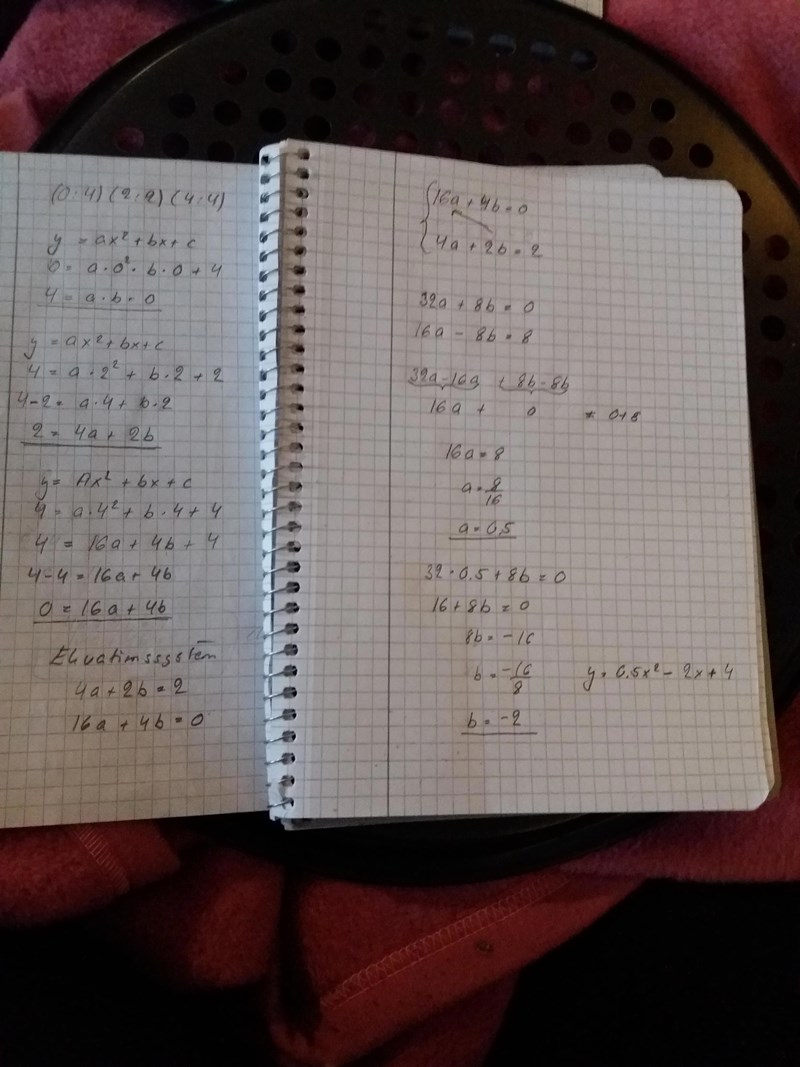 (0:4) (2:2) (4:4)
y = ax² + bx + c
0 = a·0² · b·0 + 4
4 = a·b·0
y = ax² + bx + c
4 = a·2² + b·2 + 2
4-2 = a·4 + b·2
2 = 4a + 2b
y = Ax² + bx + c
4 = a·4² + b·4 + 4
4 = 16a + 4b + 4
4-4 = 16a + 4b
0 = 16a + 4b
Ekvationssystem
4a + 2b = 2
16a + 4b = 0
16a + 4b = 0
4a + 2b = 2
32a + 8b = 0
16a - 8b = 8
32a-16a 8b-8b
16a + 0 = 0+8
16a = 8
a = 8/16
a = 0,5
32·0.5 + 8b = 0
16 + 8b = 0
8b = -16
b = -16/8 y = 0.5x² - 2x + 4
b = -2